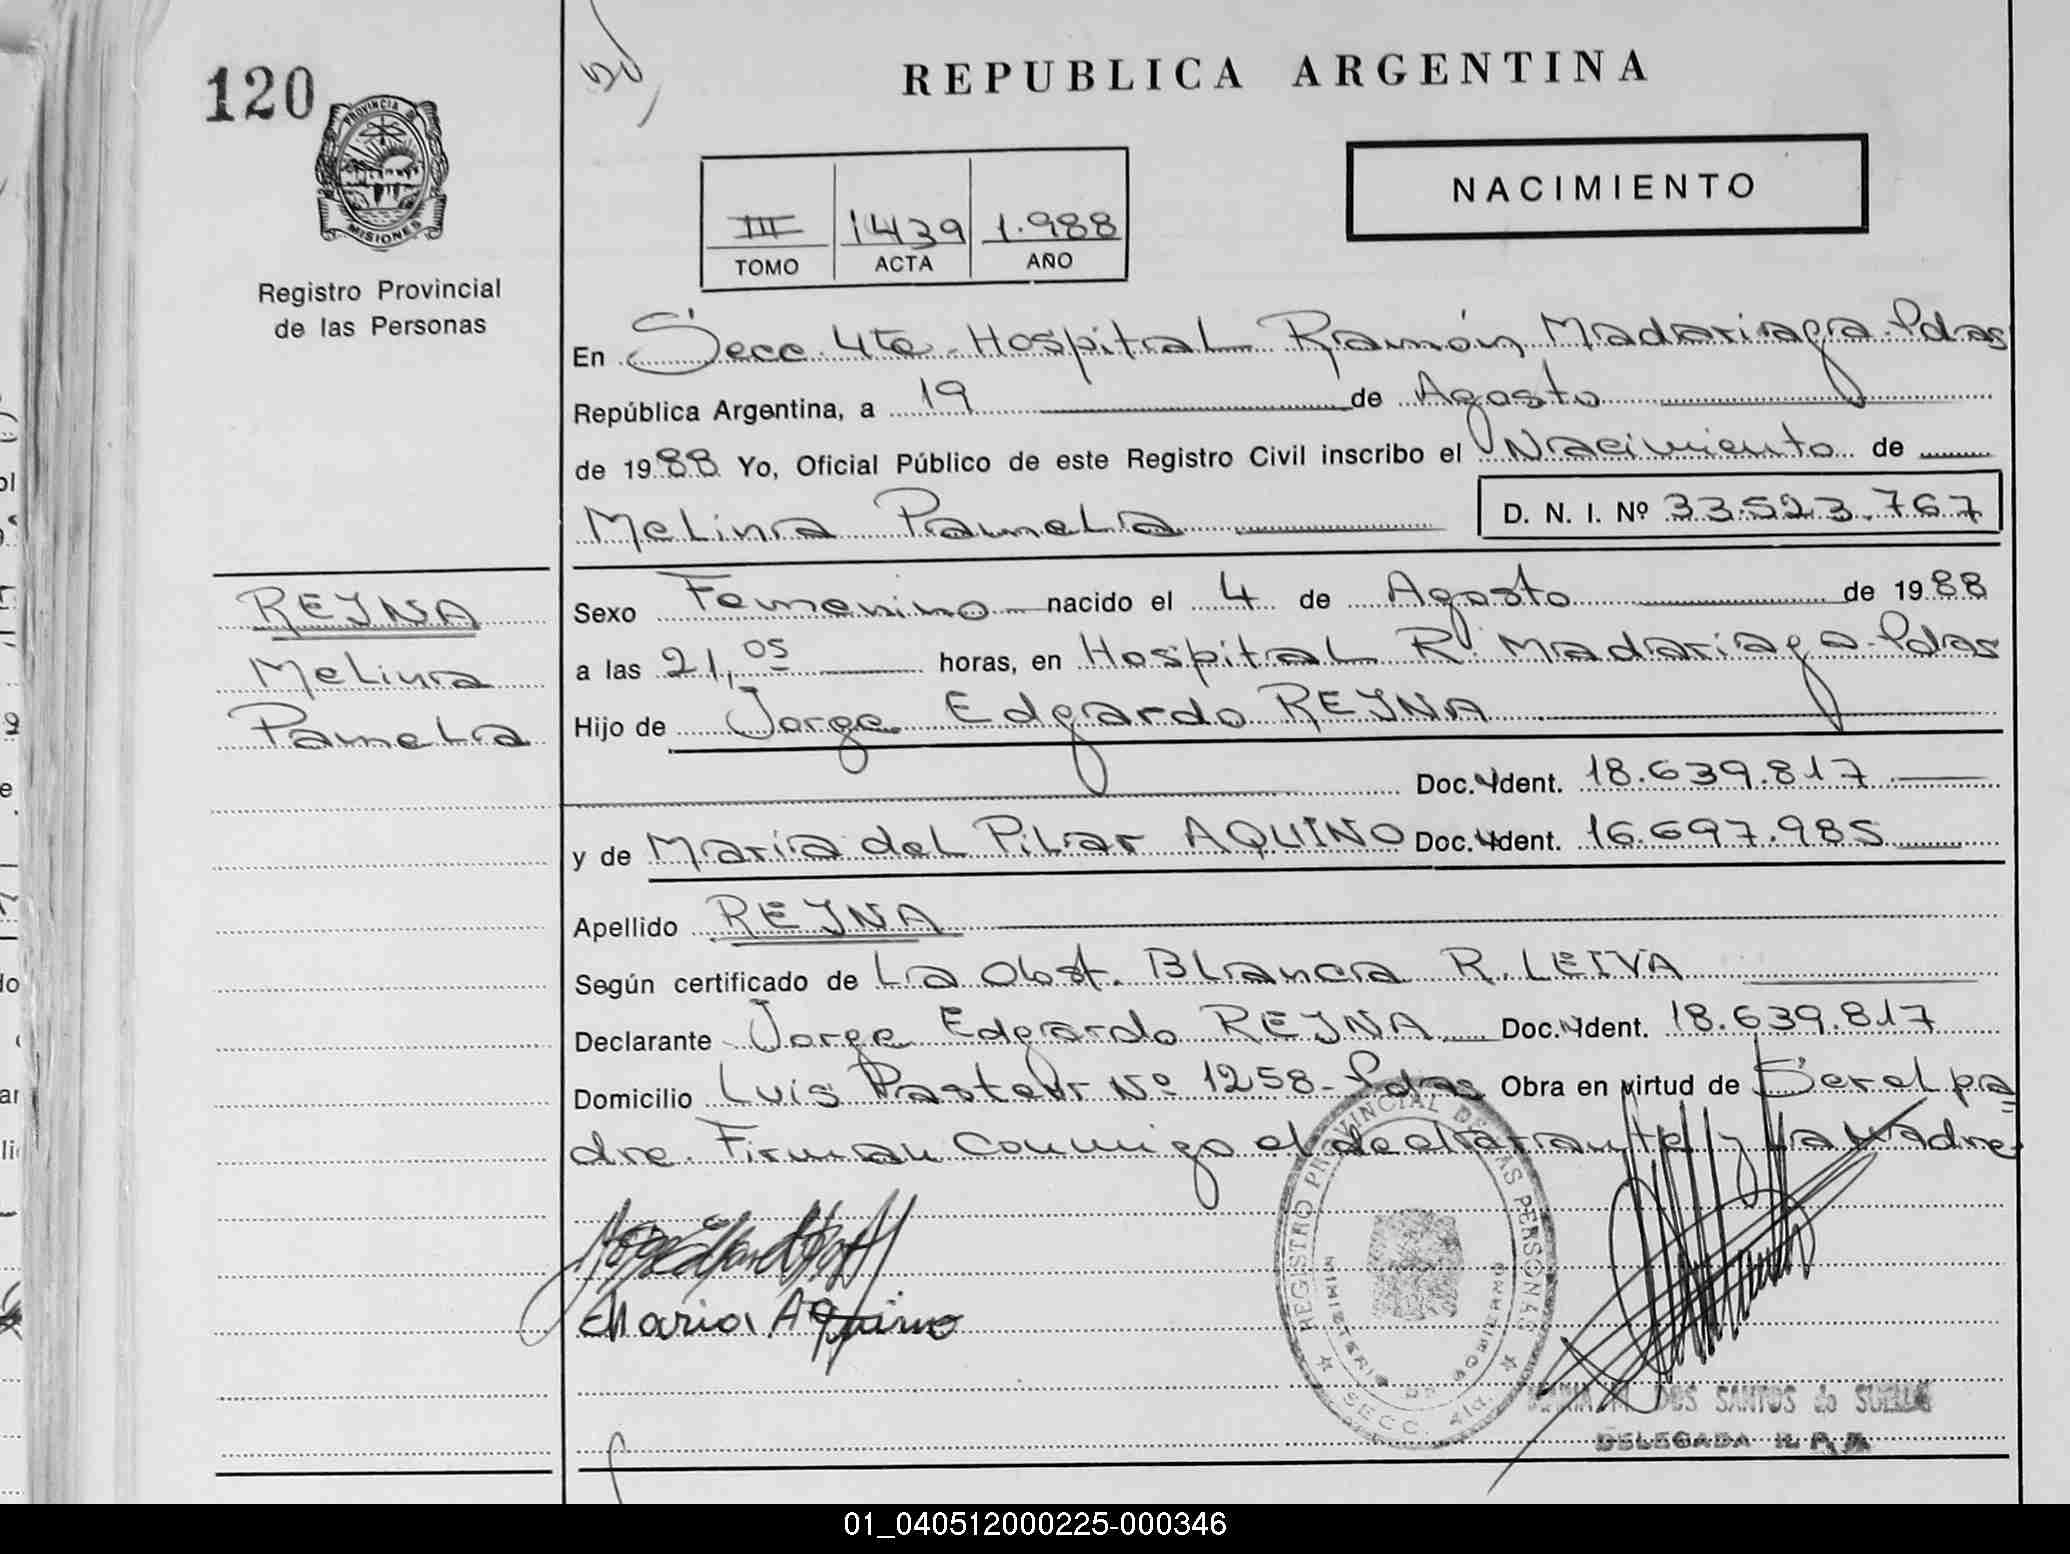 120
REPUBLICA ARGENTINA
PROVINCIA DE MISIONES
NACIMIENTO
III 1439 1.988
TOMO ACTA AÑO
Registro Provincial
de las Personas
En Secc. 4ta. Hospital Ramón Madariaga. Pdas
República Argentina, a 19 de Agosto
de 1988 Yo, Oficial Público de este Registro Civil inscribo el Nacimiento de
Melina Pamela D. N. I. Nº 33.523.767
REYNA
Melina
Pamela
Sexo Femenino nacido el 4 de Agosto de 1988
a las 21,05 horas, en Hospital R. Madariaga. Pdas
Hijo de Jorge Edgardo REYNA
Doc. Ydent. 18.639.817
y de María del Pilar AQUINO Doc. Ydent. 16.697.985
Apellido REYNA
Según certificado de La Obst. Blanca R. LEIVA
Declarante Jorge Edgardo REYNA Doc. Ydent. 18.639.817
Domicilio Luis Pasteur Nº 1258- Pdas Obra en virtud de Ser el pa
dre. Firman conmigo el declarante y la madre
Maria Aquino
REGISTRO PROVINCIAL DE LAS PERSONAS
MINISTERIO DE GOBIERNO
SECC. 4ta.
DOS SANTOS de
DELEGADA R. P. P.
01_040512000225-000346